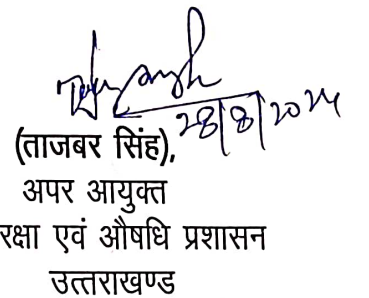 28/8/2024
(ताजबर सिंह),
अपर आयुक्त
रक्षा एवं औषधि प्रशासन
उत्तराखण्ड